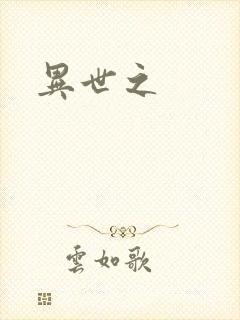 異世之
雲如歌